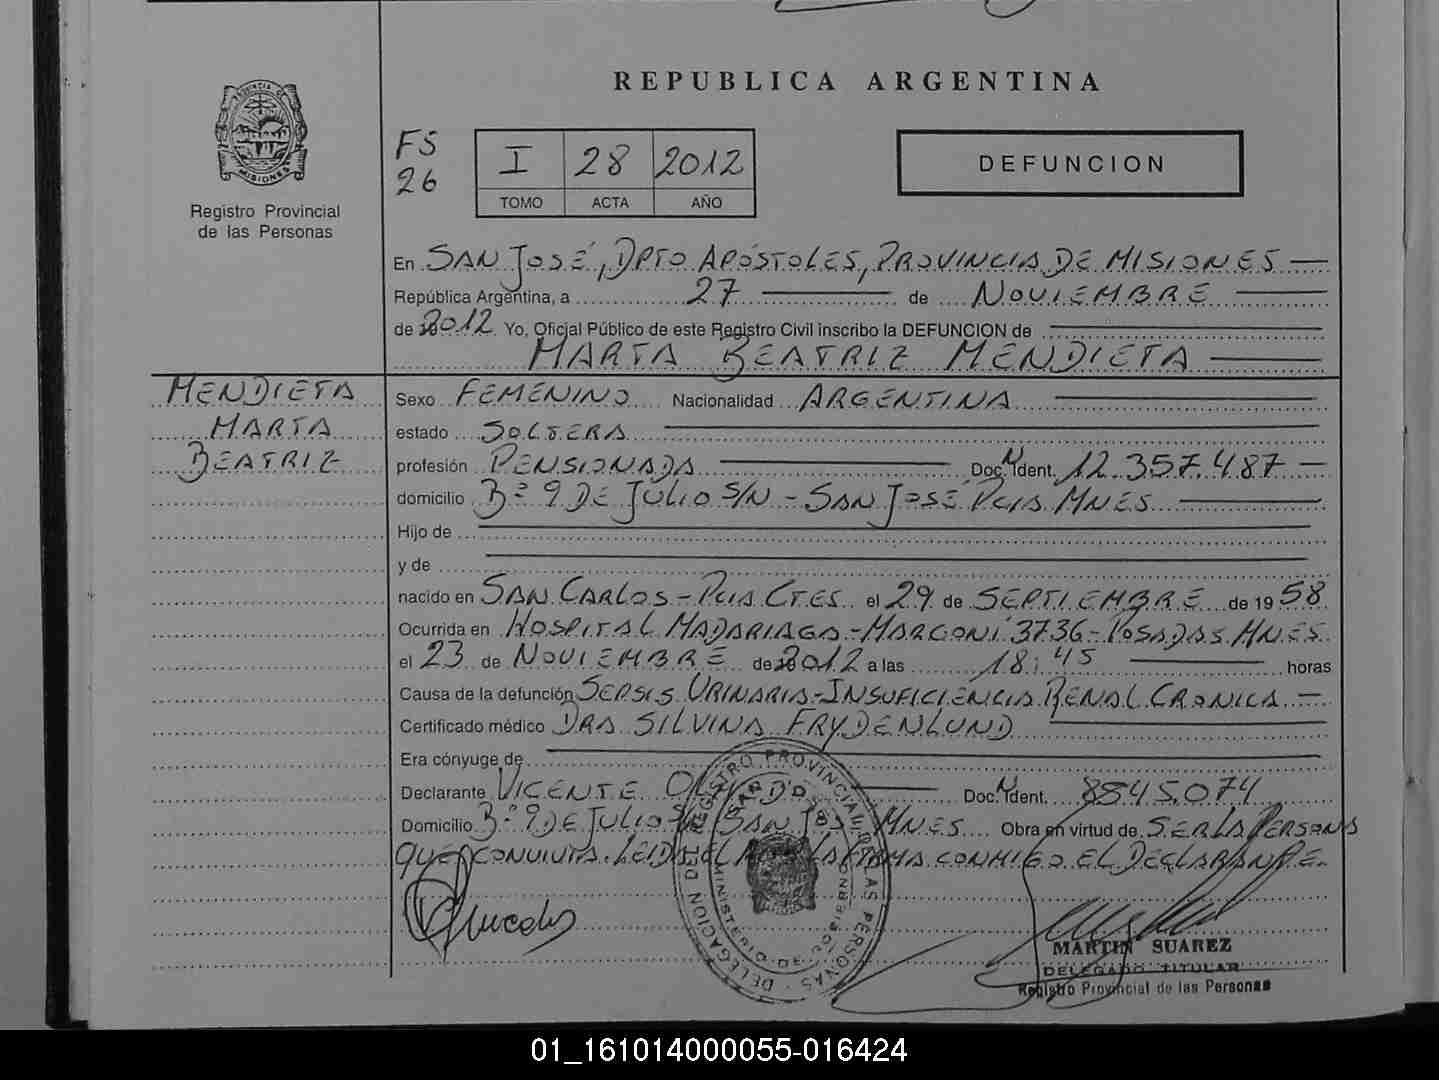 REPUBLICA ARGENTINA
PROVINCIA DE
MISIONES
Registro Provincial
de las Personas
FS
26
I 28 2012
TOMO ACTA AÑO
DEFUNCION
En SAN JOSÉ, DPTO APÓSTOLES, PROVINCIA DE MISIONES
República Argentina, a 27 de NOVIEMBRE
de 2012 Yo, Oficial Público de este Registro Civil inscribo la DEFUNCION de
MARTA BEATRIZ MENDIETA
MENDIETA
MARTA
BEATRIZ
Sexo FEMENINO Nacionalidad ARGENTINA
estado SOLTERA
profesión PENSIONADA Doc. N Ident. 12.357.487
domicilio Bº 9 DE JULIO S/N - SAN JOSÉ PCIA MNES
Hijo de
y de
nacido en SAN CARLOS - PCIA CTES el 29 de SEPTIEMBRE de 1958
Ocurrida en HOSPITAL MADARIAGA - MARCONI 3736 - POSADAS MNES
el 23 de NOVIEMBRE de 2012 a las 18:45 horas
Causa de la defunción SEPSIS URINARIA - INSUFICIENCIA RENAL CRONICA
Certificado médico DRA SILVINA FRYDENLUND
Era cónyuge de
Declarante VICENTE Doc. N Ident. 8845.074
Domicilio Bº 9 DE JULIO S/N SAN JOSÉ MNES Obra en virtud de SER LA PERSONA
QUE CONVIVIA. LEIDA EL ACTA LA FIRMA CONMIGO EL DECLARANTE.
DELEGACION DEL REGISTRO PROVINCIAL DE LAS PERSONAS
MARTIN SUAREZ
DELEGADO TITULAR
Registro Provincial de las Personas
01_161014000055-016424